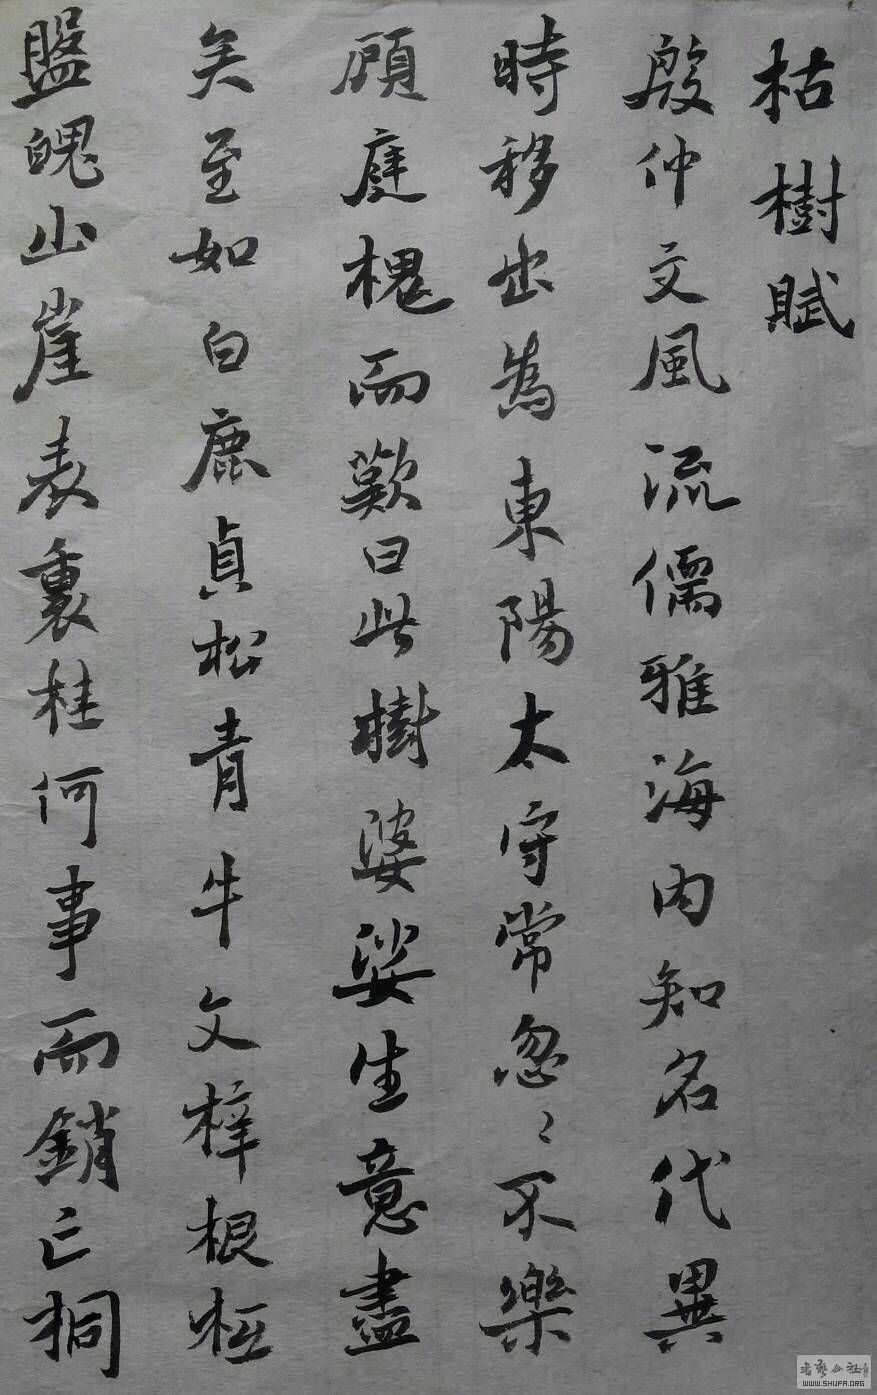 枯樹賦
殷仲文風流儒雅海内知名代異
時移出為東陽太守常忽〻不樂
顧庭槐而歎曰此樹婆娑生意盡
矣至如白鹿貞松青牛文梓根柢
盤魄山崖表裏桂何事而銷亡桐
書藝公社
WWW.SHUFA.ORG